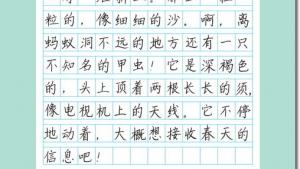 粒的,像细细的沙。啊,离
蚂蚁洞不远的地方还有一只
不知名的甲虫!它是深褐色
的,头上顶着两根长长的须,
像电视机上的天线。它不停
地动着,大概想接收春天的
信息吧!